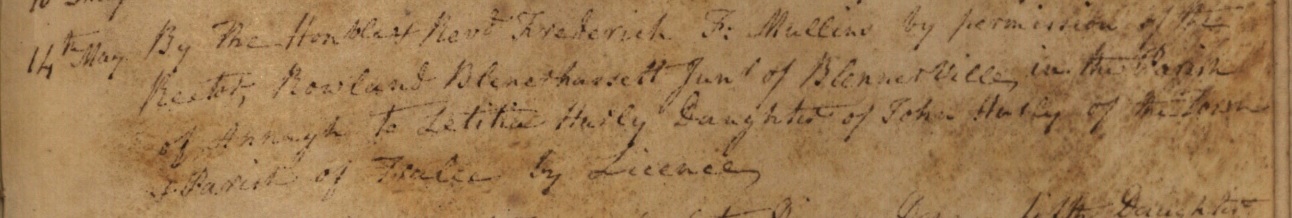 14th May By the Honblest Revd Frederick F: Mullins by permission of the
Rector, Rowland Blenerhassett Junr of BlennerVille, in the Parish
of Annagh to Letitia Hurly Daughter of John Hurly of the Town
& Parish of Tralee by Licence
Daughter